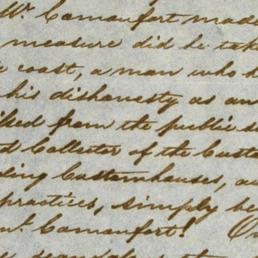 Mr. Comonfort made
measure did he take
coast, a man who
his dishonesty as an
from the public
Collector of the Custo
Customhouses, a
practices, simply be
Comonfort!